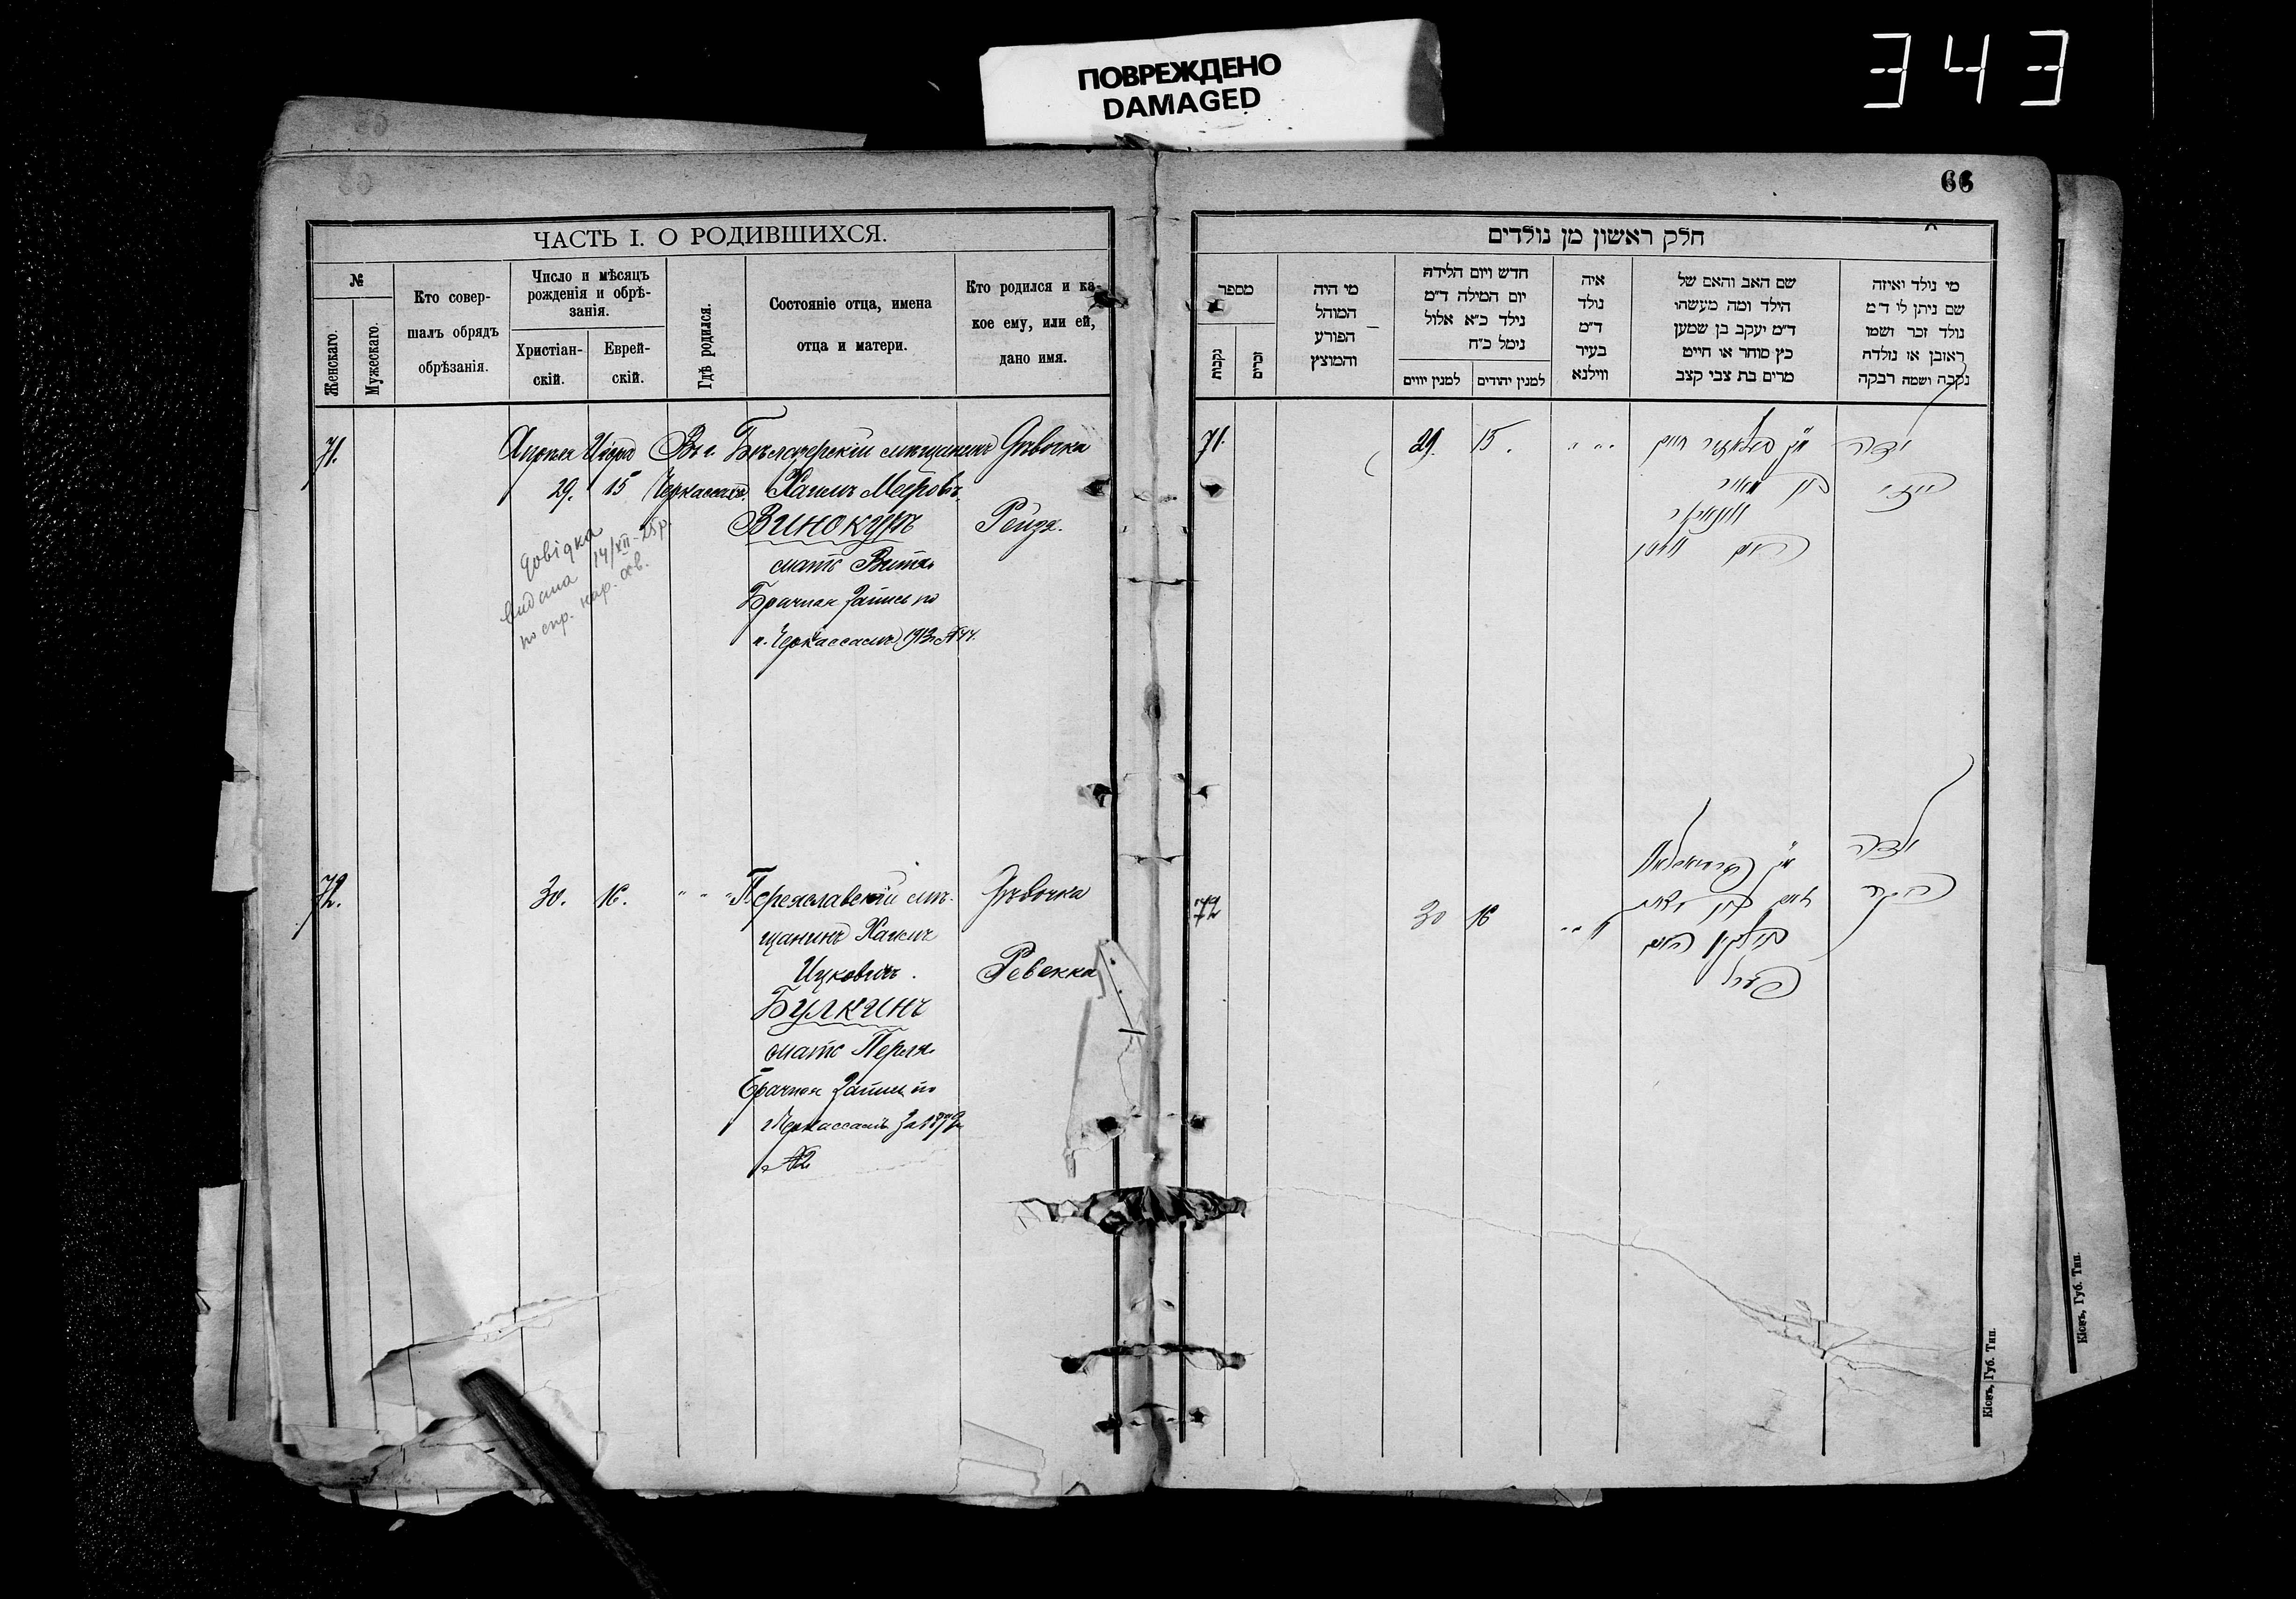 ПОВРЕЖДЕНО
DAMAGED
343
66
ЧАСТЬ I. О РОДИВШИХСЯ.
№
Женскаго.
Мужескаго.
Кто совер-
шалъ обрядъ
обрѣзанія.
Число и мѣсяцъ
рожденія и обрѣ-
занія.
Христіан-
скій.
Еврей-
скій.
Гдѣ родился.
Состояніе отца, имена
отца и матери.
Кто родился и ка-
кое ему, или ей,
дано имя.
71.
Апрѣля
29.
15
Въ г.
Черкассахъ.
Бѣлозерскій мѣщанинъ
Хаимъ Мееровъ
Винокуръ
мать Витя
Брачная запись по
г. Черкассамъ 1913 №44.
Дѣвочка
Рейзя.
довідка
видана 14/XII-25р.
по спр. нар. осв.
72.
30.
16.
" " "
Переяславскій мѣ-
щанинъ Хаимъ
Ицковичъ.
Булкинъ
мать Перля
Брачная запись по
г. Черкассамъ за
№2
Дѣвочка
Ребекка
חלק ראשון מן נולדים
מספר
נקבות
זכרים
מי היה
המוהל
הפורע
והמוצץ
חדש ויום הלידה
יום המילה ד״מ
נילד כ״א אלול
נימל כ״ח
למנין יוים
למנין יהודים
איה
נולד
ד״מ
בעיר
ווילנא
שם האב והאם של
הילד ומה מעשהו
ד״מ יעקב בן שמען
כץ סוחר או חייט
מרים בת צבי קצב
מי נולד ואיזה
שם ניתן לו ד״מ
נולד זכר ושמו
ראובן או נולדה
נקבה ושמה רבקה
71.
29.
15.
" "
חיים
בן מאיר
ילדה
72
30
16
" "
חיים בן
האם
פערל
ילדה
רבקה
Кіевъ, Губ. Тип.
Кіевъ, Губ. Тип.